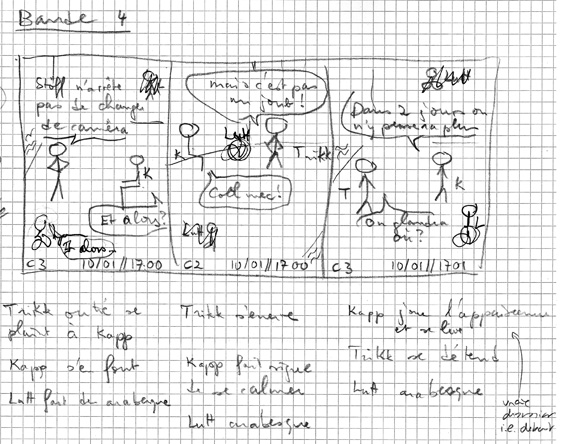 Bande 4
Stöff n'arrête
pas de changer
de caméra
K
Et alors?
Et alors
C3 10/01//17 00
mais c'est pas
un jouet!
Lutt
K
Trikk
Cool mec!
Lutt
C2 10/01//17 00
Dans 2 jours on
n'y pensera plus
T
K
On glandra
où?
C3 10/01//17 01
Trikk outré se
plaint à Kapp
Kapp s'en fout
Lutt fait des arabesque
Trikk s'énerve
Kapp fait signe
de se calmer
Lutt arabesque
Kapp joue l'apparence
et se lève
Trikk se détend
Lutt arabesque
i.e. debout